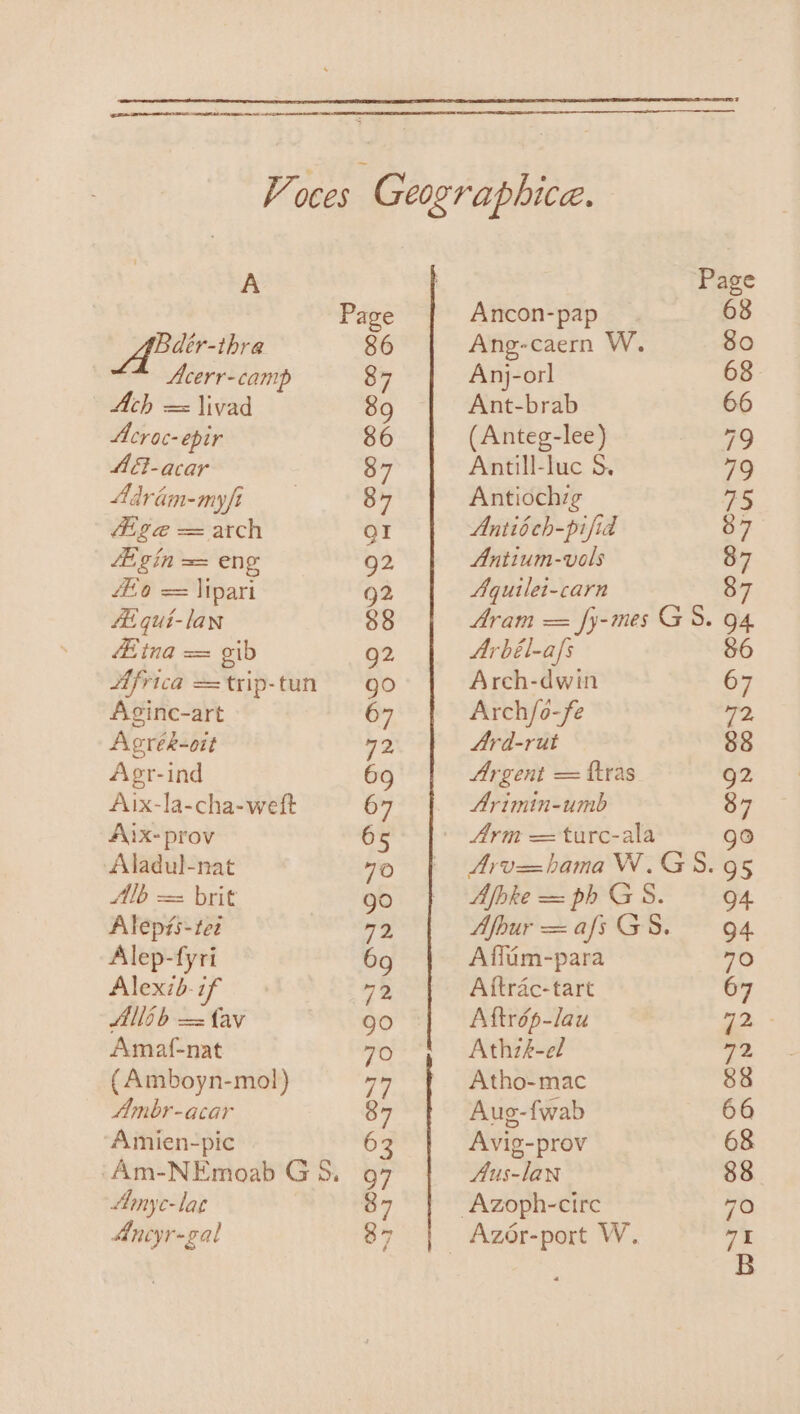 Voces Geographicæ.
A
Page
ABdér-thra 86
Acerr-camp 87
Ach = livad 89
Acroc-epir 86
Act-acar 87
Adrám-mysi 87
Ægæ = arch 91
Ægín = eng 92
Æo = lipari 92
Æquí-laN 88
Ætna = gib 92
Africa = trip-tun 90
Aginc-art 67
Agrék-oit 72
Agr-ind 69
Aix-la-cha-west 67
Aix-prov 65
Aladul-nat 70
Alb = brit 90
Alepís-tei 72
Alep-syri 69
Alexib-if 72
Allób = sav 90
Amas-nat 70
(Amboyn-mol) 77
Ambr-acar 87
Amien-pic 63
Am-NEmoab G S. 97
Amyc-lac 87
Ancyr-gal 87
Page
Ancon-pap 68
Ang-caern W. 80
Anj-orl 68
Ant-brab 66
(Anteg-lee) 79
Antill-luc S. 79
Antiochig 75
Antióch-pisid 87
Antium-vols 87
Aquilei-carn 87
Aram = ſy-mes G S. 94
Arbél-aſs 86
Arch-dwin 67
Archſo-fe 72
Ard-rut 88
Argent = ſtras 92
Arimin-umb 87
Arm = turc-ala 90
Arv=hama W. G S. 95
Aſhke = ph G S. 94
Aſhur = aſs G S. 94
Aſſúm-para 70
Aſtrác-tart 67
Aſtróp-lau 72
Athik-el 72
Atho-mac 88
Aug-ſwab 66
Avig-prov 68
Aus-laN 88
Azoph-circ 70
Azór-port W. 71
B